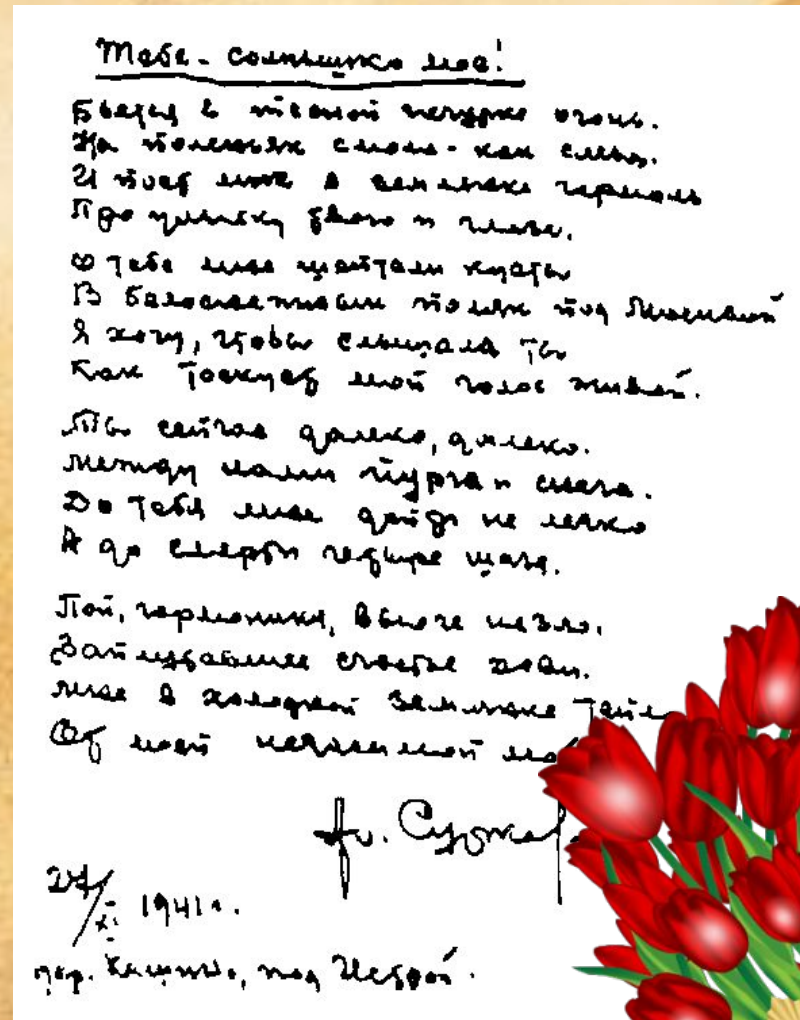 Тебе - солнышко мое!
Бьется в тесной печурке огонь.
На поленьях смола - как слеза.
И поет мне в землянке гармонь
Про улыбку твою и глаза.
О тебе мне шептали кусты
В белоснежных полях под Москвой
Я хочу, чтобы слышала ты
Как тоскует мой голос живой.
Ты сейчас далеко, далеко.
Между нами пурга и снега.
До тебя мне дойти не легко
А до смерти четыре шага.
Пой, гармоника, вьюге назло.
Заплутавшее счастье зови.
Мне в холодной землянке
От моей негасимой
Ал. Сурков
27/XI 1941 г.
дер. Кашино, под Истрой.